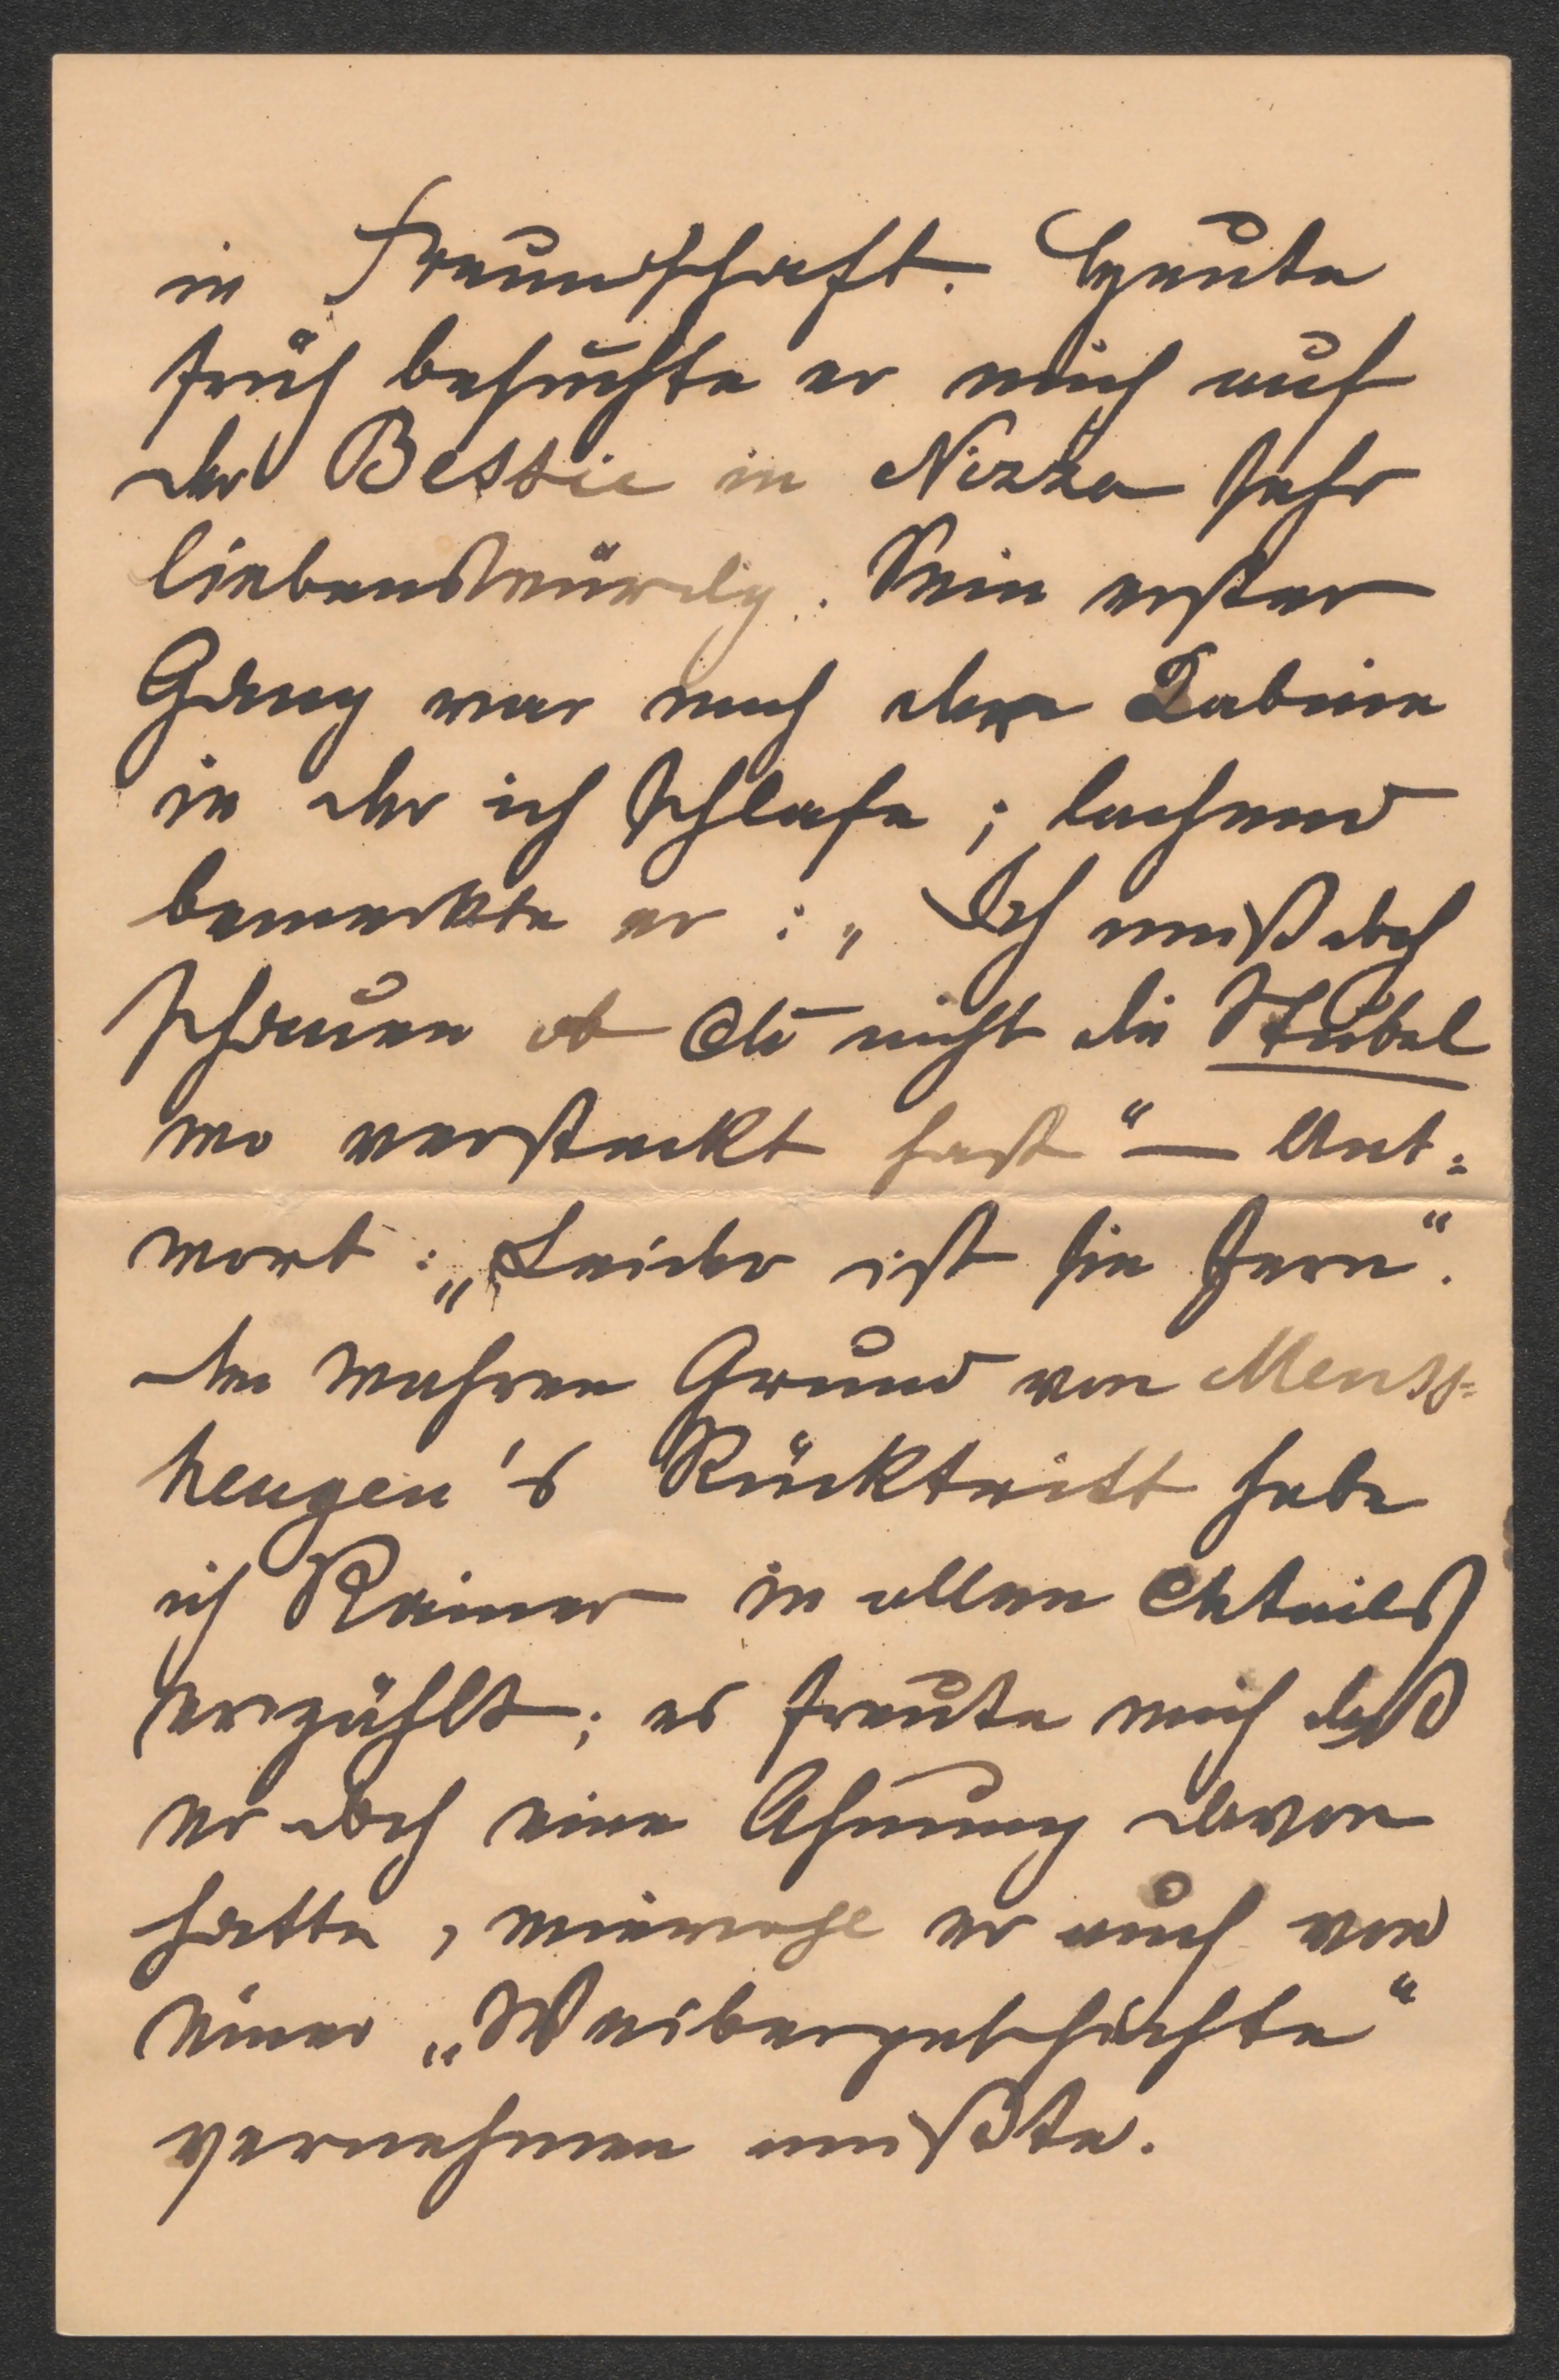 in Freundschaft. Heute
früh besuchte er mich auf
der Bessie in Nizza sehr
liebenswürdig. Sein erster
Gang war nach der Cabine
in der ich schlafe; lachend
bemerkte er: „Ich muß doch
schauen ob Du nicht die Stubel
wo versteckt hast“ — Ant=
wort: „Leider ist sie fern“.
den wahren Grund von Menss=
hengen's Rücktritt habe
ich Rainer in allen Details
erzählt; es freute mich daß
er doch eine Ahnung davon
hatte, wiewohl er auch von
einer „Weibergeschichte“
vernehmen mußte.